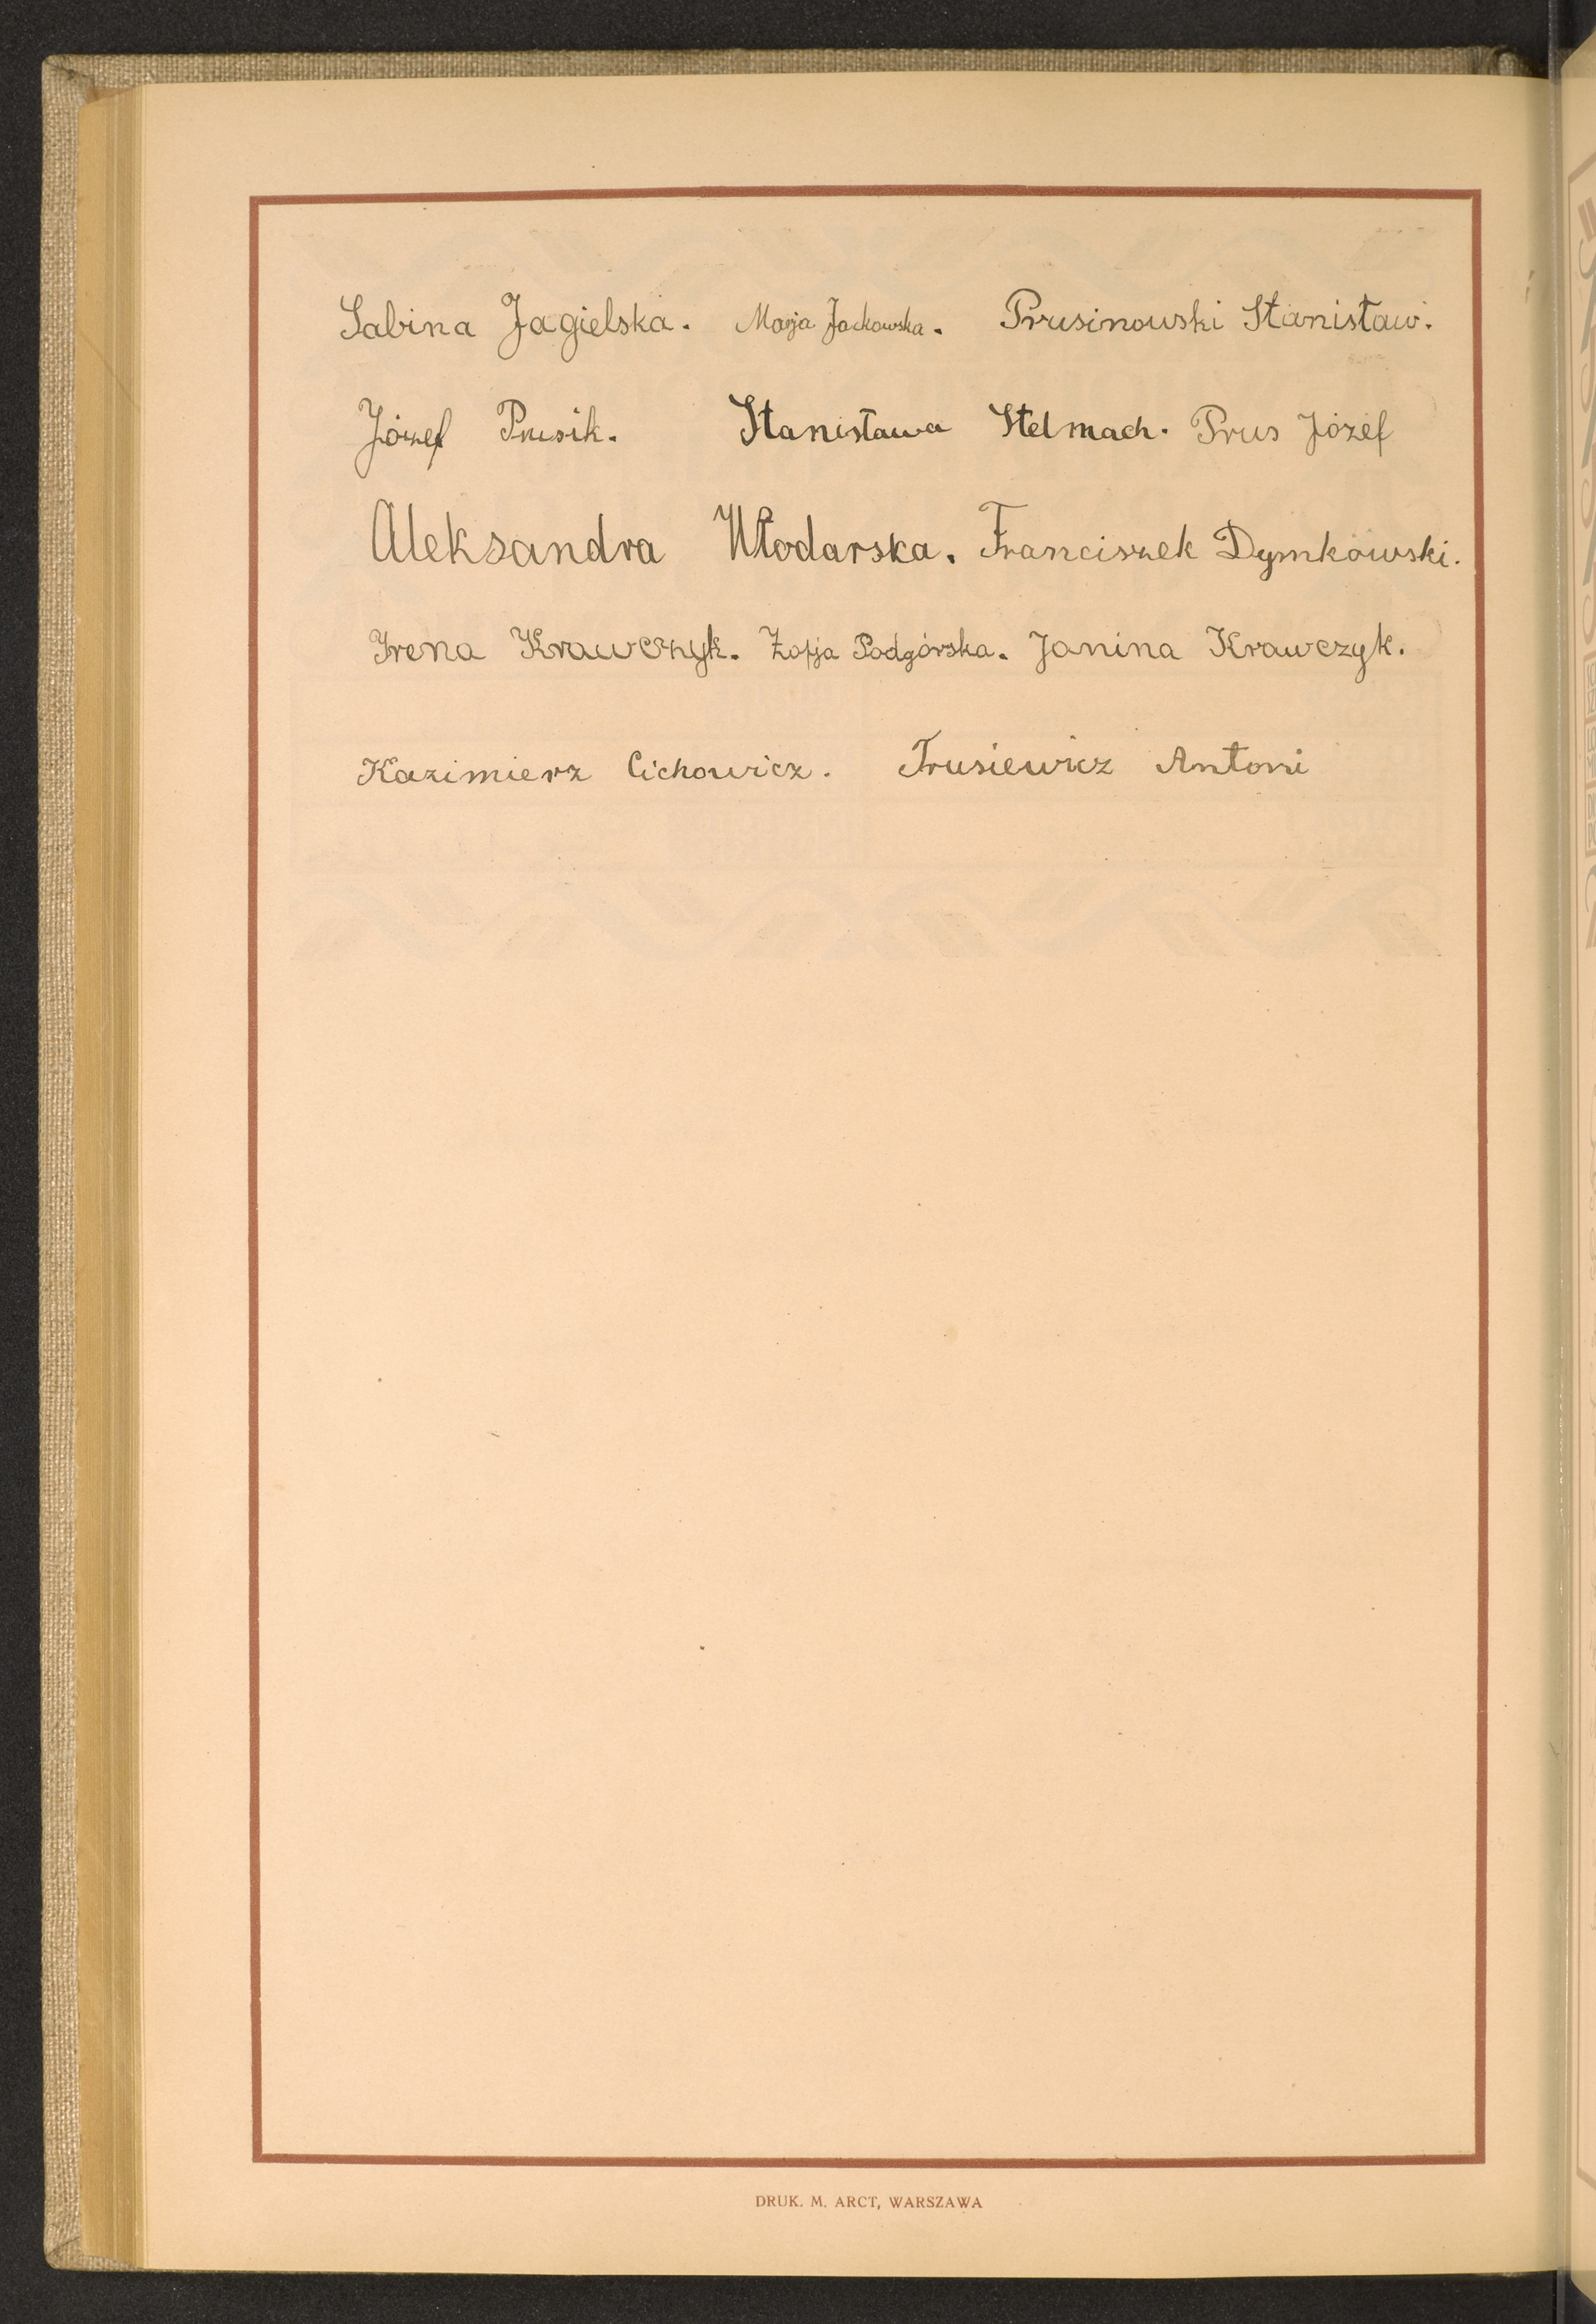 Sabina Jagielska. Marja Jackowska. Prusinowski Stanisław.
Józef Prusik. Stanisława Stelmach. Prus Józef
Aleksandra Włodarska. Franciszek Dymkowski.
Irena Krawczyk. Zofja Podgórska. Janina Krawczyk.
Kazimierz Cichowicz. Trusiewicz Antoni
DRUK. M. ARCT, WARSZAWA